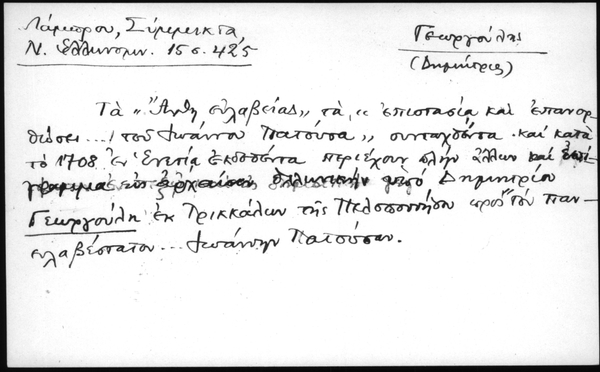 Λάμπρου, Σύμμεικτα,
Ν. Ἑλληνομν. 15 σ. 425
Γεωργούλης
(Δημήτριος)
Τὰ «Ἄνθη εὐλαβείας» τὰ «ἐπιστασίᾳ καὶ ἐπανορ-
θώσει... τοῦ Ἰωάννου Πατούσα» συνταχθέντα καὶ κατὰ
τὸ 1708 ἐν Ἑνετίᾳ ἐκδοθέντα περιέχουν πλὴν ἄλλων καὶ ἐπί-
γραμμα εἰς ὑπὸ Δημητρίου
Γεωργούλη ἐκ Τρικκάλων τῆς Πελοποννήσου πρὸς "τὸν παν-
ευλαβέστατον... Ἰωάννην Πατούσαν.